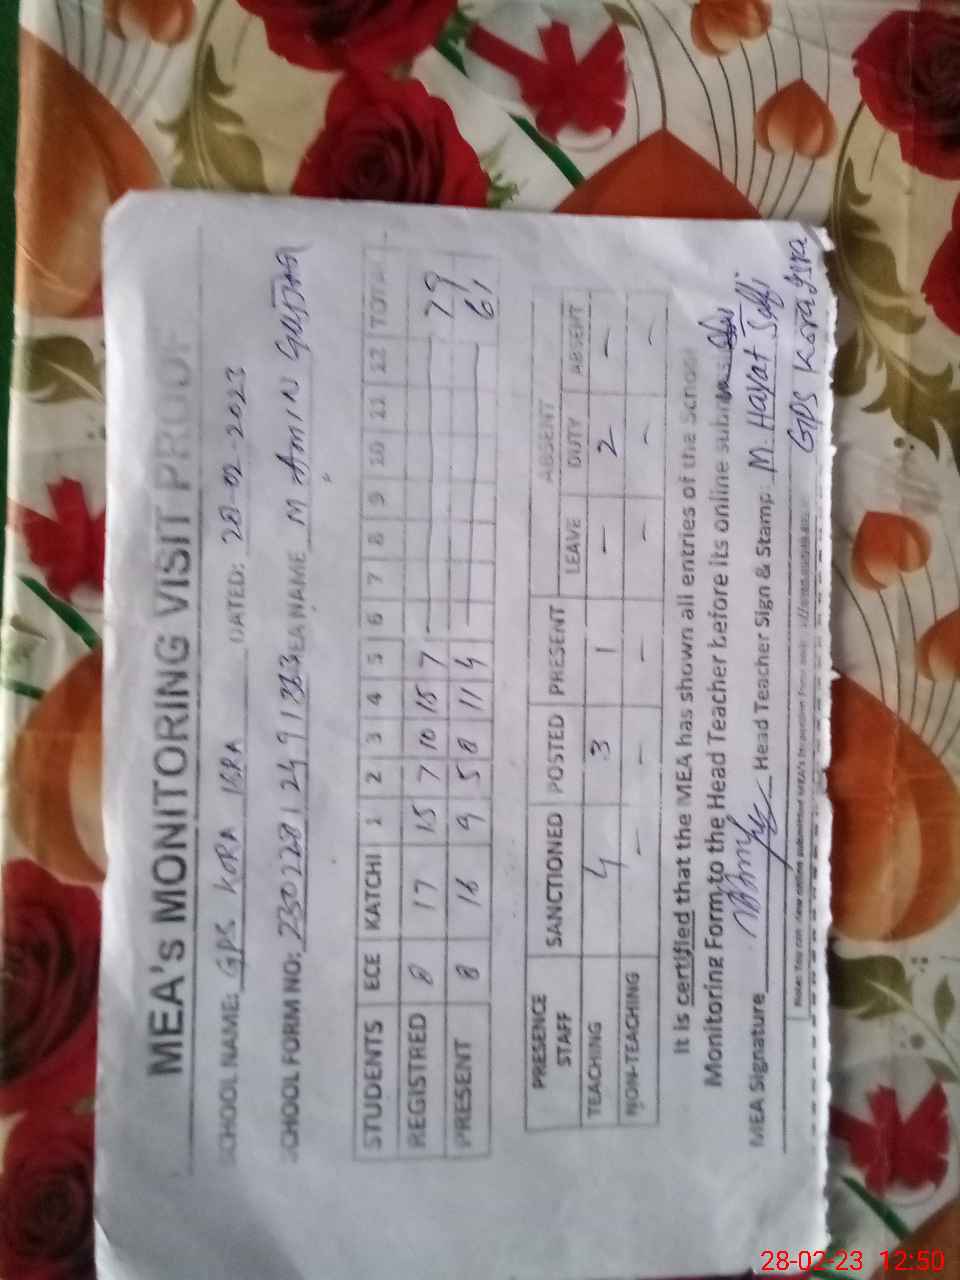 MEA's MONITORING VISIT PROOF
SCHOOL NAME: GPS KORA ISRA DATED: 28-02-2023
SCHOOL FORM NO: MEA NAME M AMIN
STUDENTS ECE KATCHI 1 2 3 4 5 6 7 8 9 10 11 12 TOTAL
REGISTRED 8 17 15 7 10 15 7 79
PRESENT 8 16 9 5 8 11 4 61
PRESENCE STAFF SANCTIONED POSTED PRESENT ABSENT
LEAVE DUTY ABSENT
TEACHING 4 3 1 - 2 -
NON-TEACHING - - - - - -
It is certified that the MEA has shown all entries of the School
Monitoring Form to the Head Teacher before its online
MEA Signature Head Teacher Sign & Stamp: M. Hayat
GPS Kora Isra
Note: You can view online submitted MEA's Inspection Form
28-02-23 12:50